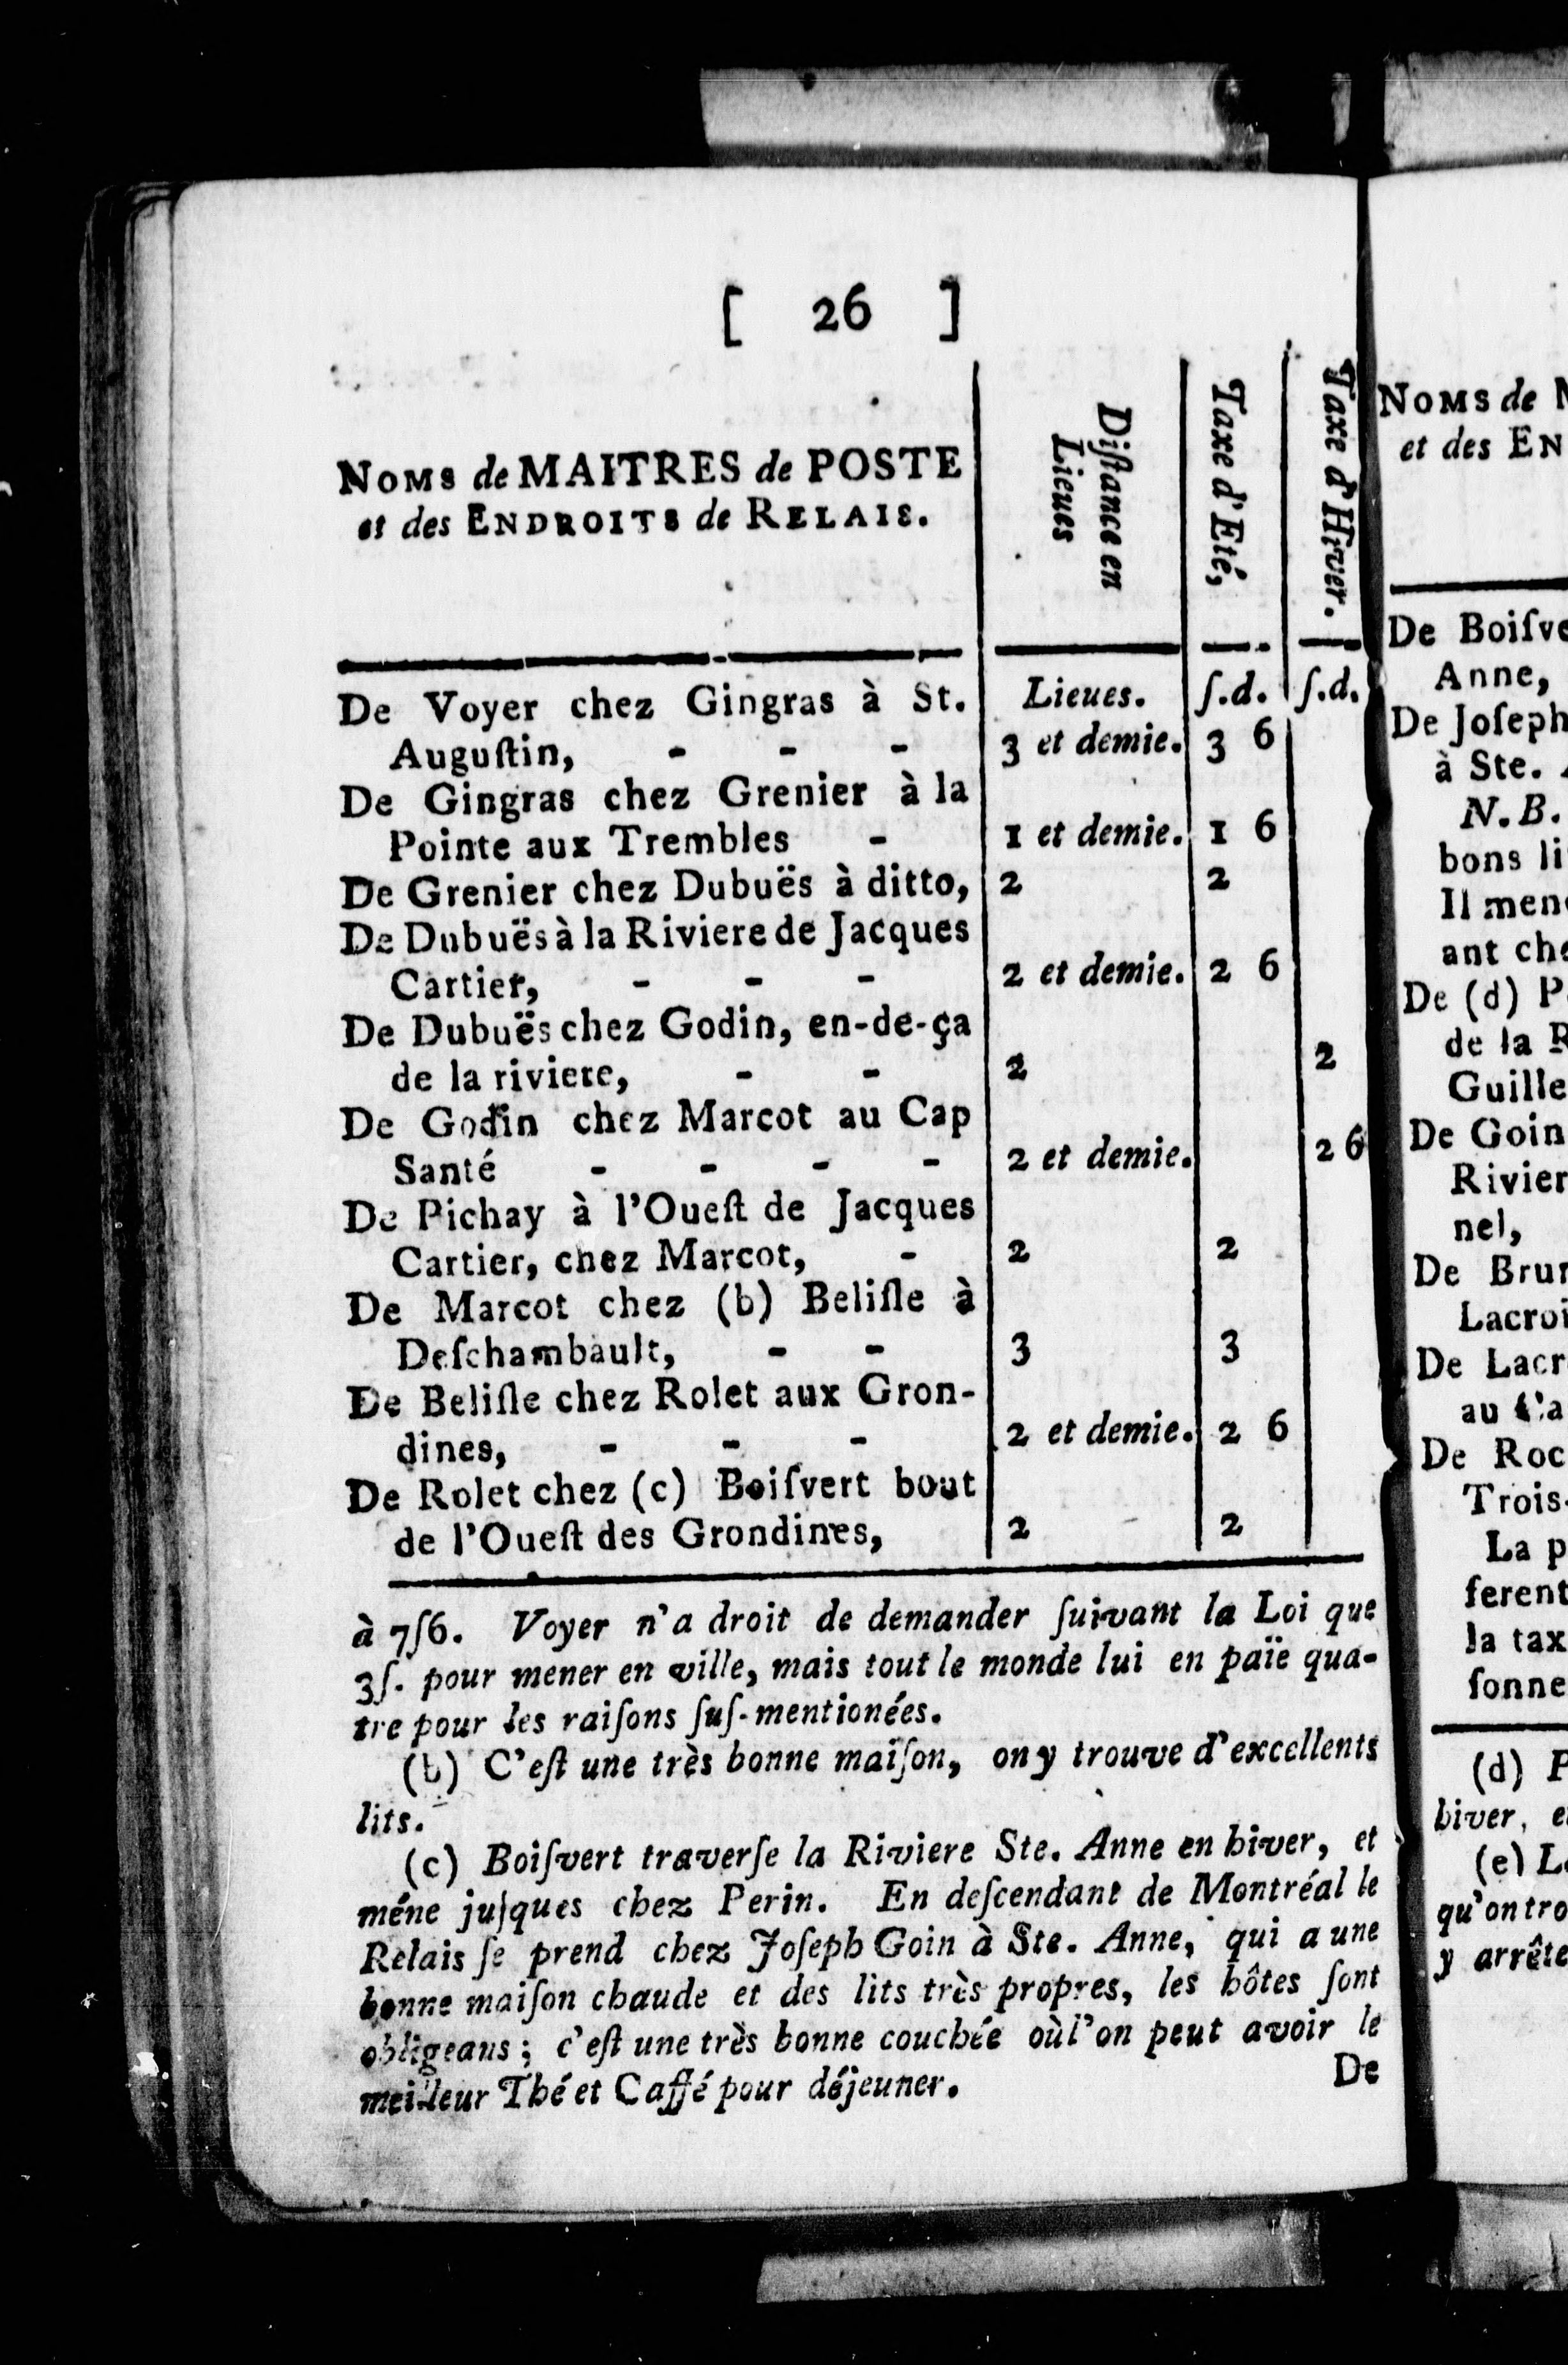 [ 26 ]
NOMS de MAITRES de POSTE
et des ENDROITS de RELAIS.
Diſtance en
Lieues
Taxe d'Eté,
Taxe d'Hiver.
Lieues. ſ.d. ſ.d.
De Voyer chez Gingras à St.
Auguſtin, - - - 3 et demie. 3 6
De Gingras chez Grenier à la
Pointe aux Trembles - 1 et demie. 1 6
De Grenier chez Dubuës à ditto, 2 2
De Dubuës à la Riviere de Jacques
Cartier, - - - 2 et demie. 2 6
De Dubuës chez Godin, en-de-ça
de la riviere, - - 2 2
De Godin chez Marcot au Cap
Santé - - - - 2 et demie. 2 6
De Pichay à l'Oueſt de Jacques
Cartier, chez Marcot, - 2 2
De Marcot chez (b) Beliſle à
Deſchambault, - - 3 3
De Beliſle chez Rolet aux Gron-
dines, - - - 2 et demie. 2 6
De Rolet chez (c) Boiſvert bout
de l'Oueſt des Grondines, 2 2
à 7ſ6. Voyer n'a droit de demander ſuivant la Loi que
3ſ. pour mener en ville, mais tout le monde lui en païe qua-
tre pour les raiſons ſuſ-mentionées.
(b) C'eſt une très bonne maiſon, on y trouve d'excellents
lits.
(c) Boiſvert traverſe la Riviere Ste. Anne en hiver, et
méne juſques chez Perin. En deſcendant de Montréal le
Relais ſe prend chez Joſeph Goin à Ste. Anne, qui a une
bonne maiſon chaude et des lits très propres, les hôtes ſont
obligeans ; c'eſt une très bonne couchée où l'on peut avoir le
meilleur Thé et Caffé pour déjeuner.
De
NOMS de
et des EN
De Boiſve
Anne,
De Joſeph
à Ste.
N.B.
bons li
Il men
ant che
De (d) P
de la R
Guille
De Goin
Rivier
nel,
De Brun
Lacroi
De Lacr
au
De Roc
Trois-
La p
ferent
la tax
ſonne
(d) P
hiver, e
(e) L
qu'on tro
y arrête